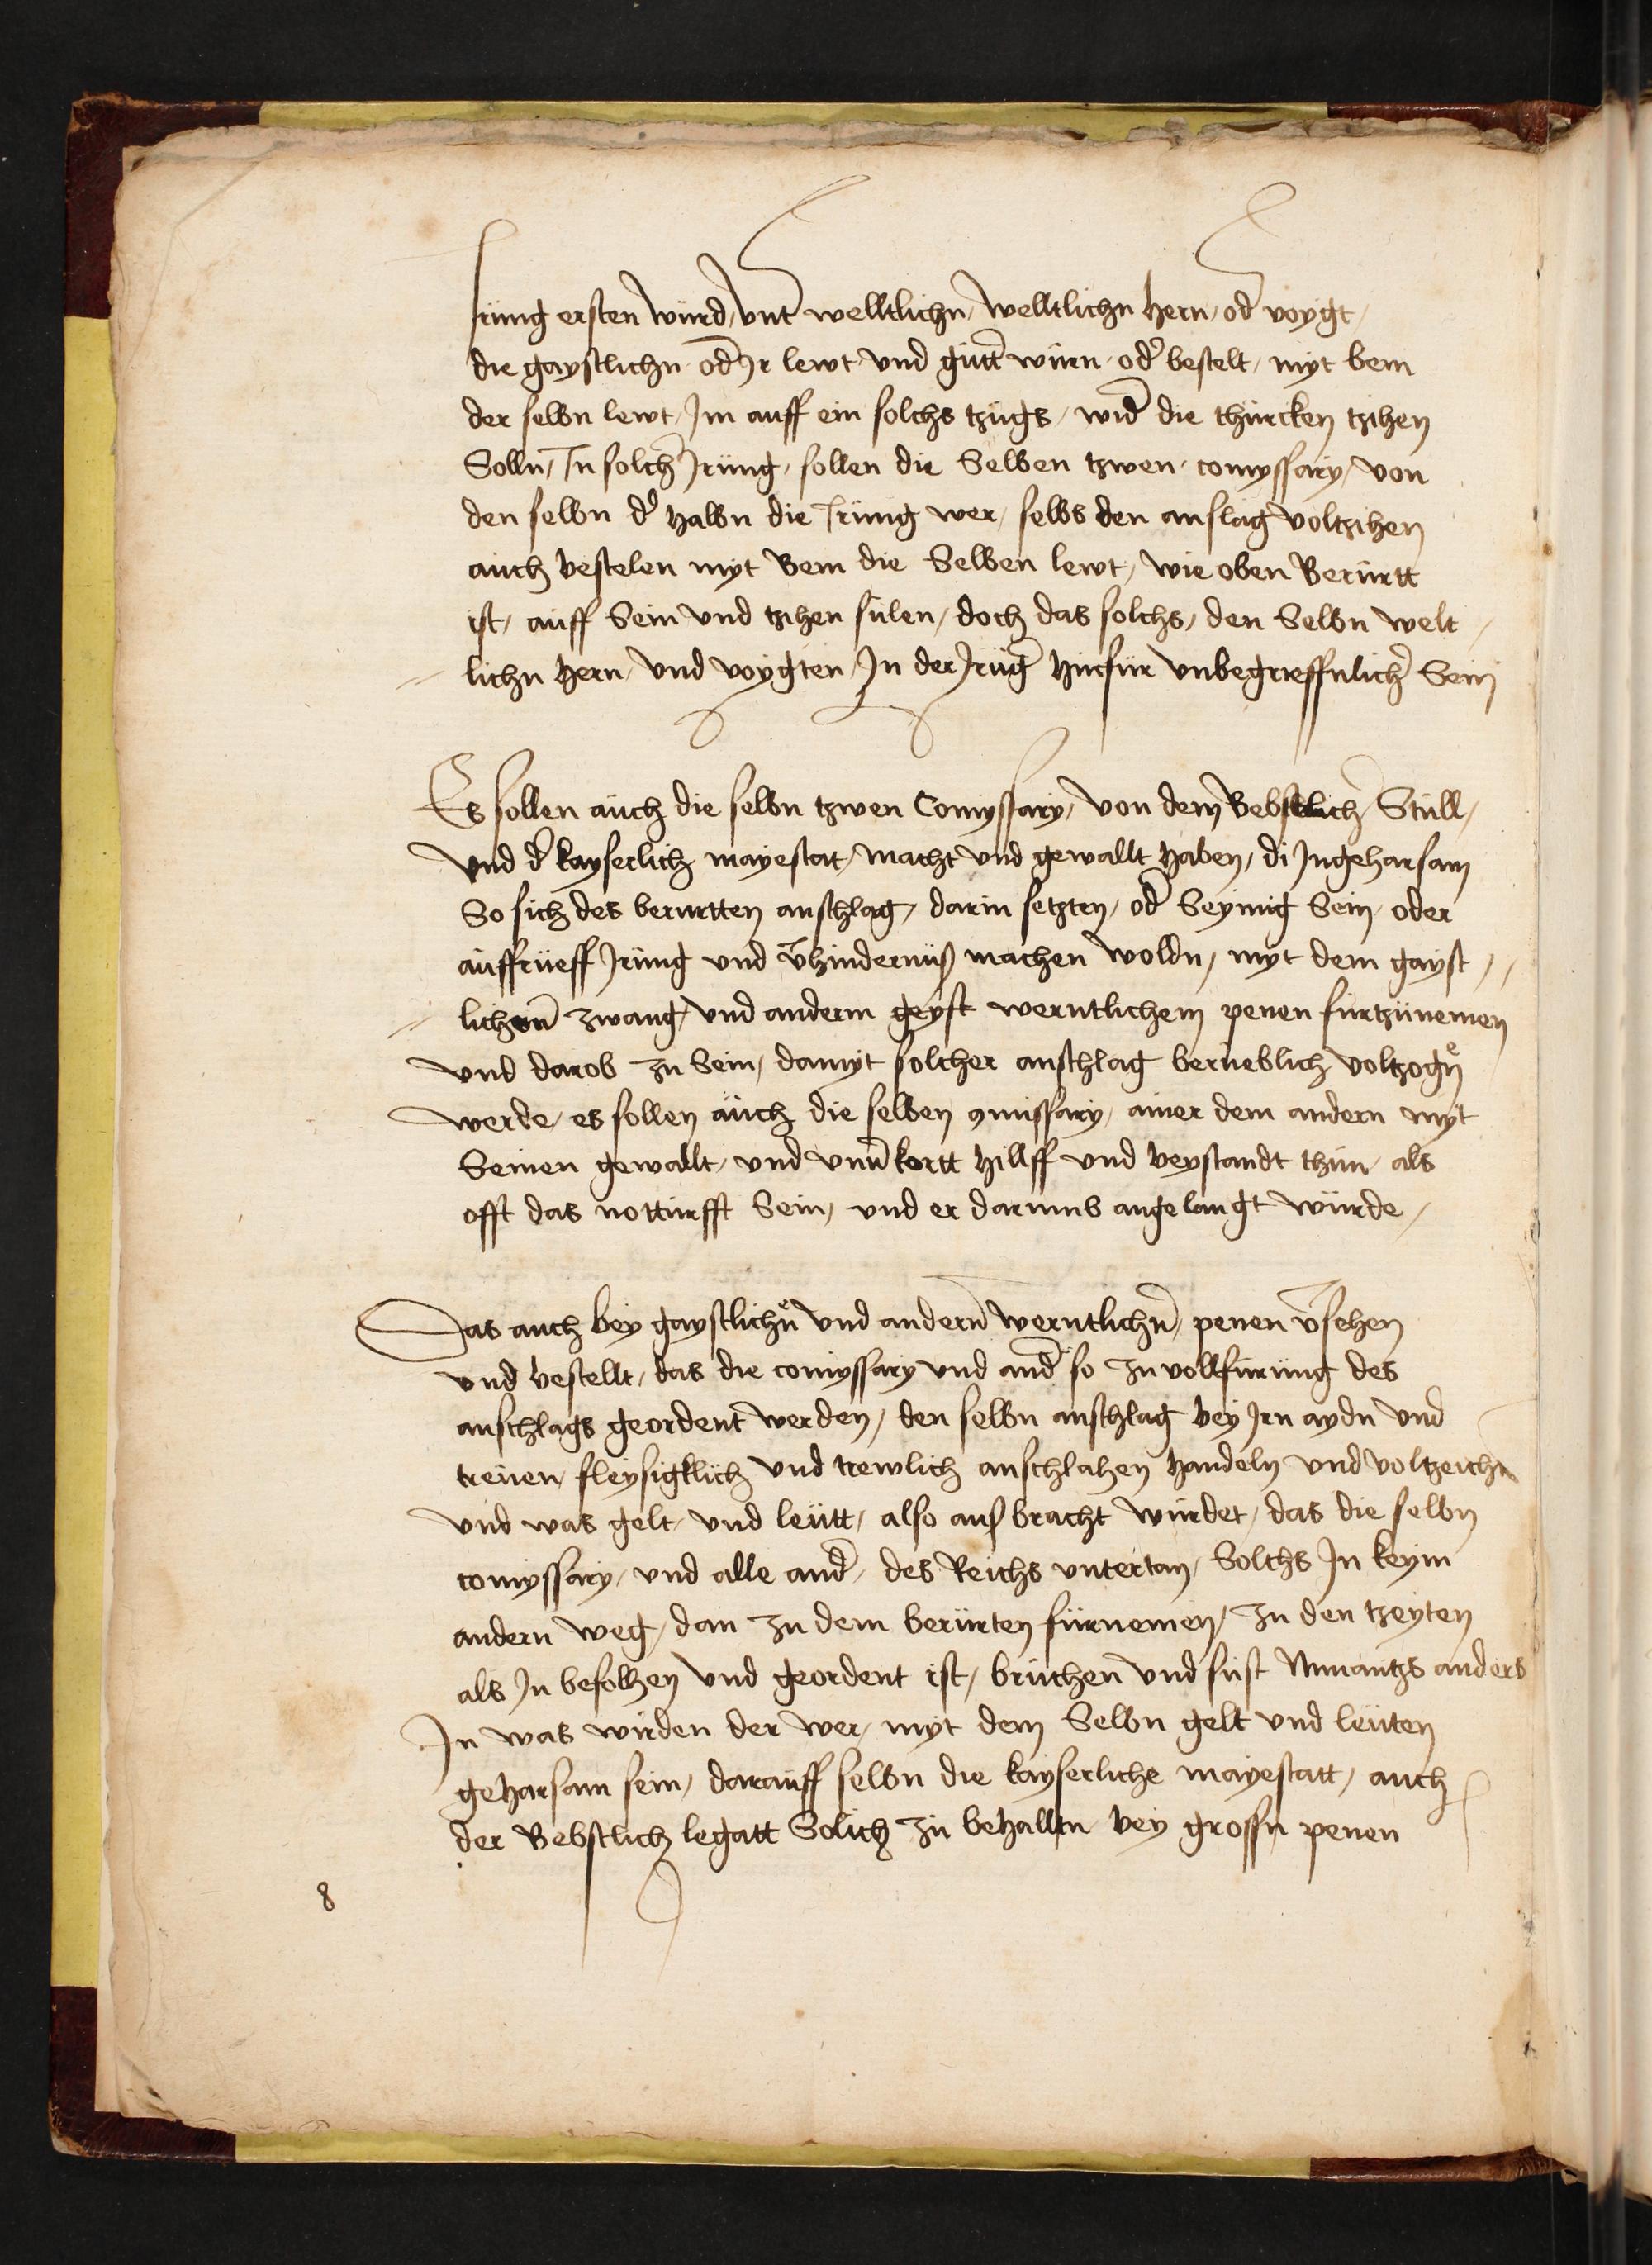 Irüng ersten würd, vnt̃ welltlichn, welltlichn hern, od̃ voygt,
die gaystlichn od̃ Ir lewt und gütt̃ würn od̃ bestelt, myt bem
der selbn lewt, Im auff ein solchs tzügs, wid̃ die thürcken tzihen
Solln, In solch̃ Irüng, sollen die Selben tzwen comyssary, von
den selbn d̃ halbn die Irüng wer, selbs den anslag voltzihen
auch bestelen myt Bem die Selben lewt, wie oben Berürtt
ist, auff Sein vnd tzihen sülen, doch das solchs, den Selbn welt
lichn hern, vnd voygten, In der Irüg̃ hinfür vnbegrieffnlich̃ Sein
Es sollen aüch die selbn tzwen Comyssary, von dem Bebstlich̃ Stüll,
Vnd d̃ kayserlich mayestat, macht vnd gewallt haben, di Vngeharsam
So sich des berurtten anschlag, darin setzten, od̃ Seymig Sein oder
auffrüeff Irüng vnd ṽhindernüß machen woldn, myt dem gayst
lichen̄ zwang, vnd anderm geyst werntlichem penen fürtzünemen
vnd darob zu Sein, damyt solcher anschlag berüeblich voltzogn̄
werde, es sollen aüch die selben 9missary, ainer dem andern myt
Seinen gewallt, vnd hillff vnd beystandt thün, als
offt das notturfft Sein, vnd er darumb angelangt würde,
Das auch bey gaystlichn̄ vnd andern̄ werntlichn̄, penen v̄sehen
vnd bestellt, das die comyssary vnd and̃ so zu vollfürüng des
anschlags geordent werden, den selbn anschlag bey Irn aydn vnd
treüen, fleysigklich vnd trewlich anschlahen handeln vnd voltzeichn
vnd was gelt, vnd leütt, also auß bracht würdet, das die selbn
comyssary, vnd alle and̃, des Reichs vntertan, Solchs In keym
andern weg, dan zu dem berürten fürnemen, zu den tzeyten
als In befolhen vnd geordent ist, brüchen̄ vnd süst Nimantzs anders
In was wirden der wer, myt dem Selbn gelt vnd leüten
geharsam sein, darauff selbn die kayserliche mayestatt, auch
der Bebstlich legatt Solich zü behallten bey grossn penen
8